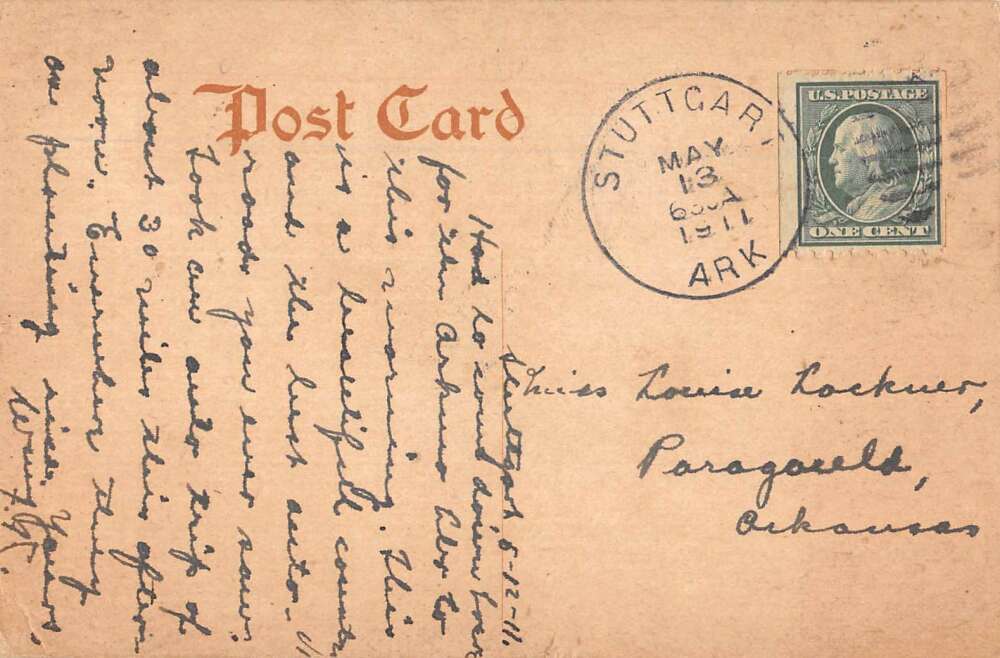 Post Card
STUTTGAR
MAY
13
1911
ARK
U.S. POSTAGE
ONE CENT
Miss Louise Lockner,
Paragould,
Arkansas
Stuttgart 5-12-11.
Had to come down here
for the Arkmo Lbr Co
this morning. This
is a beautiful country
and the best auto-
roads you ever saw.
Took an auto trip of
about 30 miles this after-
noon. Everywhere they
are planting rice. Yours,